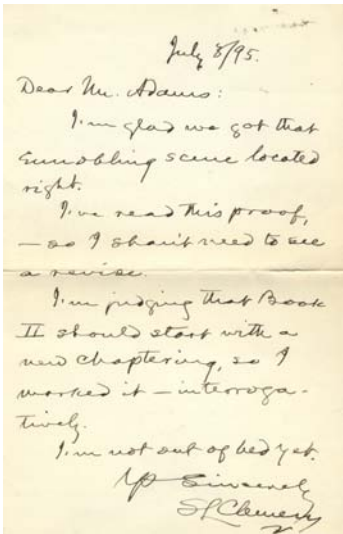 July 8/95.
Dear Mr. Adams:
I'm glad we got that
ennobling scene located
right.
I've read this proof,
—so I shan't need to see
a revise.
I'm judging that Book
II should start with a
new chaptering, so I
marked it — interroga-
tively.
I'm not out of bed yet.
Yrs Sincerely
SL Clemens